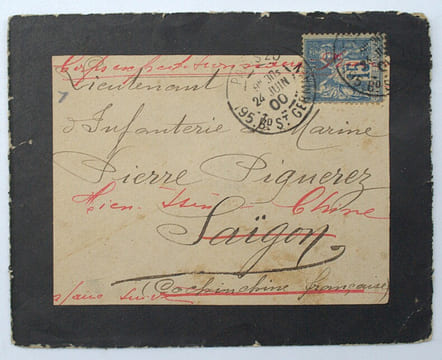 Corps expéditionnaire
Lieutenant
d'Infanterie de Marine
Pierre Piguerez
Tien-Tsin Chine
Saïgon
(Cochinchine française)
PARIS
24 JUIN
00
95. Bd ST GERMAIN